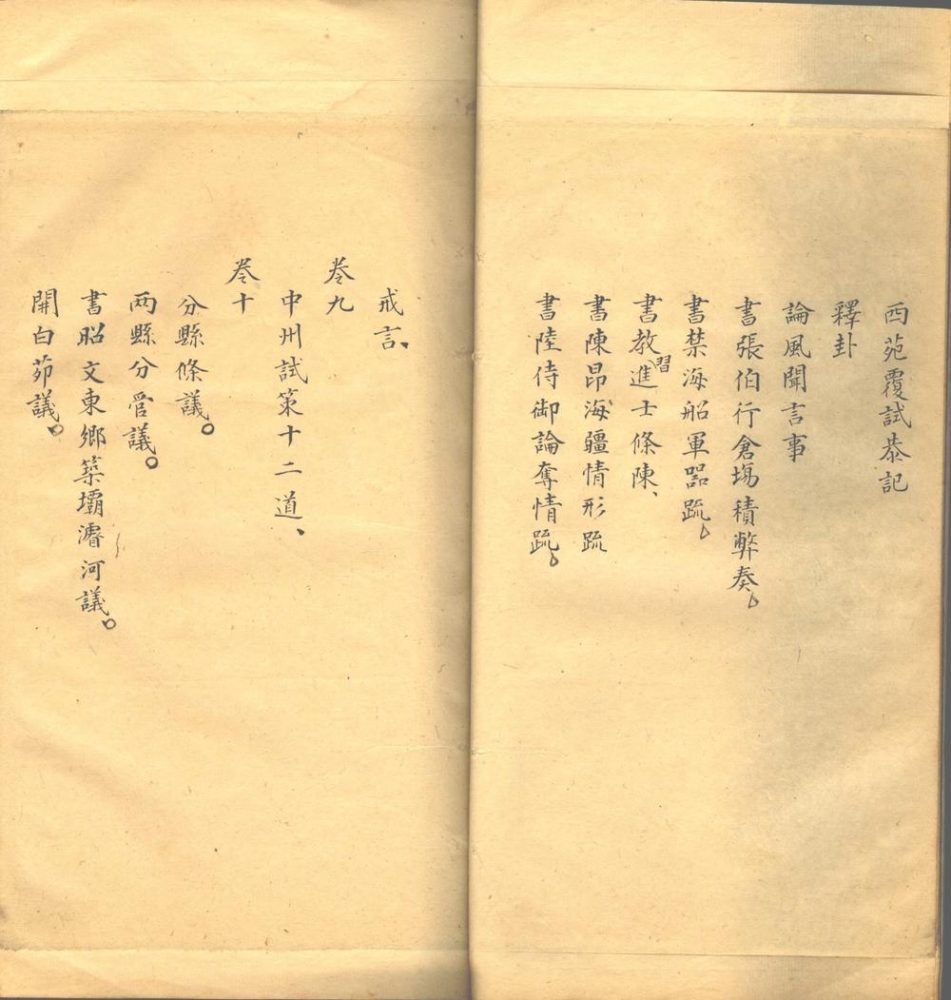 西苑覆試恭記
釋卦
論風聞言事
書張伯行倉場積弊奏。
書禁海船軍器疏。
書教習進士條陳、
書陳昂海疆情形疏
書陸侍御論奪情疏。
戒言、
卷九
中州試策十二道、
卷十
分縣條議。
兩縣分管議。
書昭文東鄉築壩濬河議。
開白茆議。